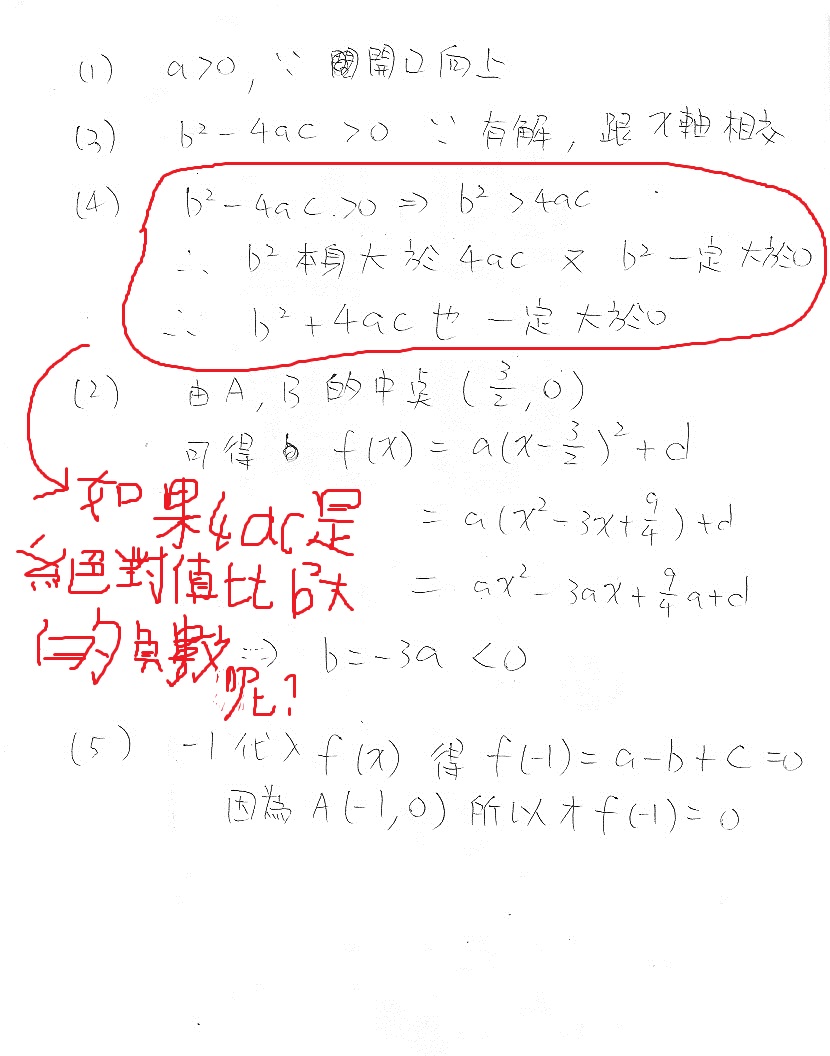 (1) a>0, ∵ 開口向上
(3) b²-4ac>0 ∵ 有解, 跟x軸相交
(4) b²-4ac>0 ⇒ b²>4ac
∴ b²本身大於4ac 又 b²一定大於0
∴ b²+4ac也一定大於0
(2) 由A, B的中奌(3/2, 0)
可得 f(x) = a(x-3/2)²+d
= a(x²-3x+9/4)+d
= ax²-3ax+9/4a+d
⇒ b=-3a<0
如果4ac是
絕對值比b²大
的負數
呢?
(5) -1代入f(x) 得 f(-1)=a-b+c=0
因為A(-1,0)所以才f(-1)=0